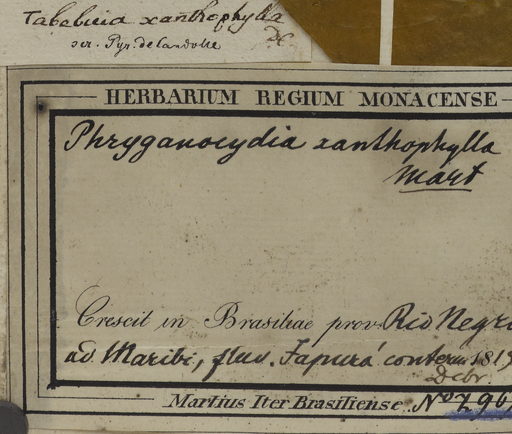 Tabebuia xanthophylla
DC
scr. Pyr. de Candolle
HERBARIUM REGIUM MONACENSE
Phryganocydia xanthophylla
Mart
Crescit in Brasiliae prov. Rio Negro
ad Maribi, fluv. Japurá conterm 1819
Debr
Martius Iter Brasiliense. No 296